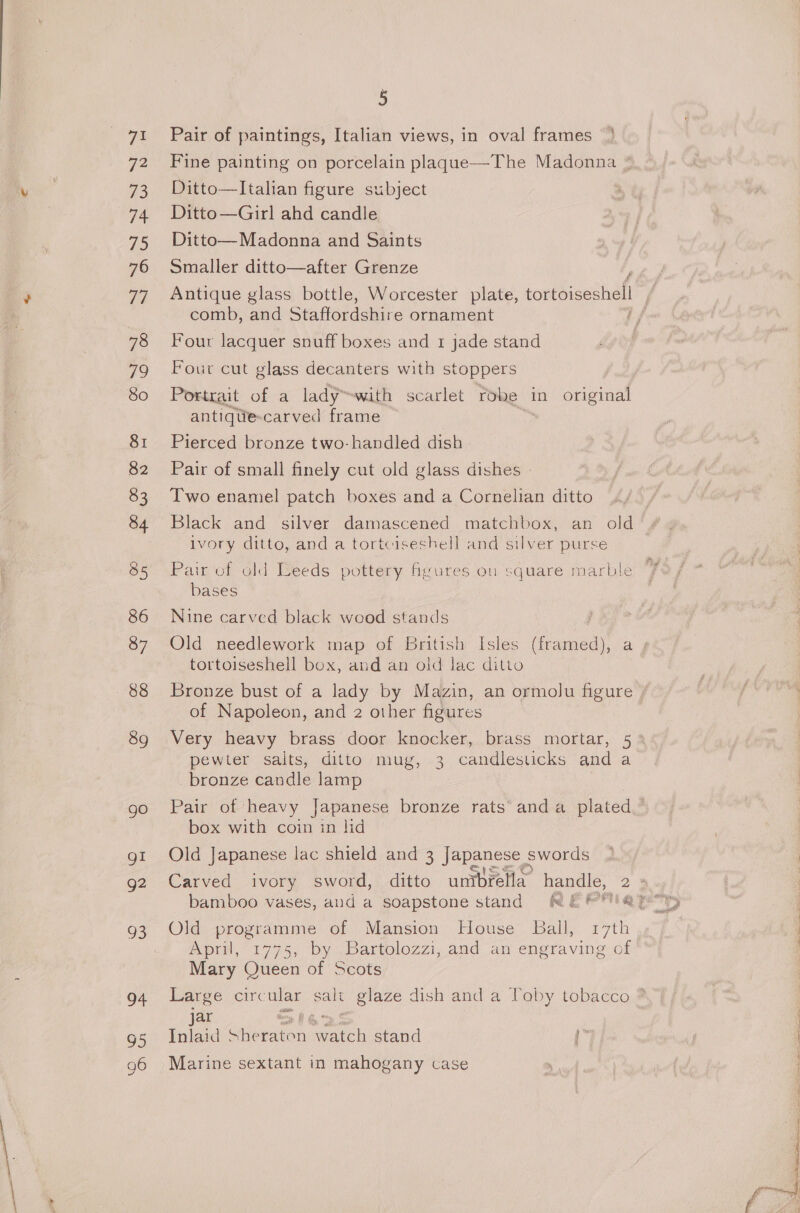 5
71 Pair of paintings, Italian views, in oval frames
72 Fine painting on porcelain plaque—The Madonna
73 Ditto—Italian figure subject
74 Ditto—Girl ahd candle
75 Ditto—Madonna and Saints
76 Smaller ditto—after Grenze
77 Antique glass bottle, Worcester plate, tortoiseshell
comb, and Staffordshire ornament
78 Four lacquer snuff boxes and 1 jade stand
79 Four cut glass decanters with stoppers
80 Portrait of a lady with scarlet robe in original
antique carved frame
81 Pierced bronze two-handled dish
82 Pair of small finely cut old glass dishes
83 Two enamel patch boxes and a Cornelian ditto
84 Black and silver damascened matchbox, an old
ivory ditto, and a tortoiseshell and silver purse
85 Pair of old Leeds pottery figures on square marble
bases
86 Nine carved black wood stands
87 Old needlework map of British Isles (framed), a
tortoiseshell box, and an old lac ditto
88 Bronze bust of a lady by Mazin, an ormolu figure
of Napoleon, and 2 other figures
89 Very heavy brass door knocker, brass mortar, 5
pewter salts, ditto mug, 3 candlesticks and a
bronze candle lamp
90 Pair of heavy Japanese bronze rats and a plated
box with coin in lid
91 Old Japanese lac shield and 3 Japanese swords
92 Carved ivory sword, ditto umbrella handle, 2
bamboo vases, and a soapstone stand
93 Old programme of Mansion House Ball, 17th
April, 1775, by Bartolozzi, and an engraving of
Mary Queen of Scots
94 Large circular salt glaze dish and a Toby tobacco
jar
95 Inlaid Sheraton watch stand
96 Marine sextant in mahogany case